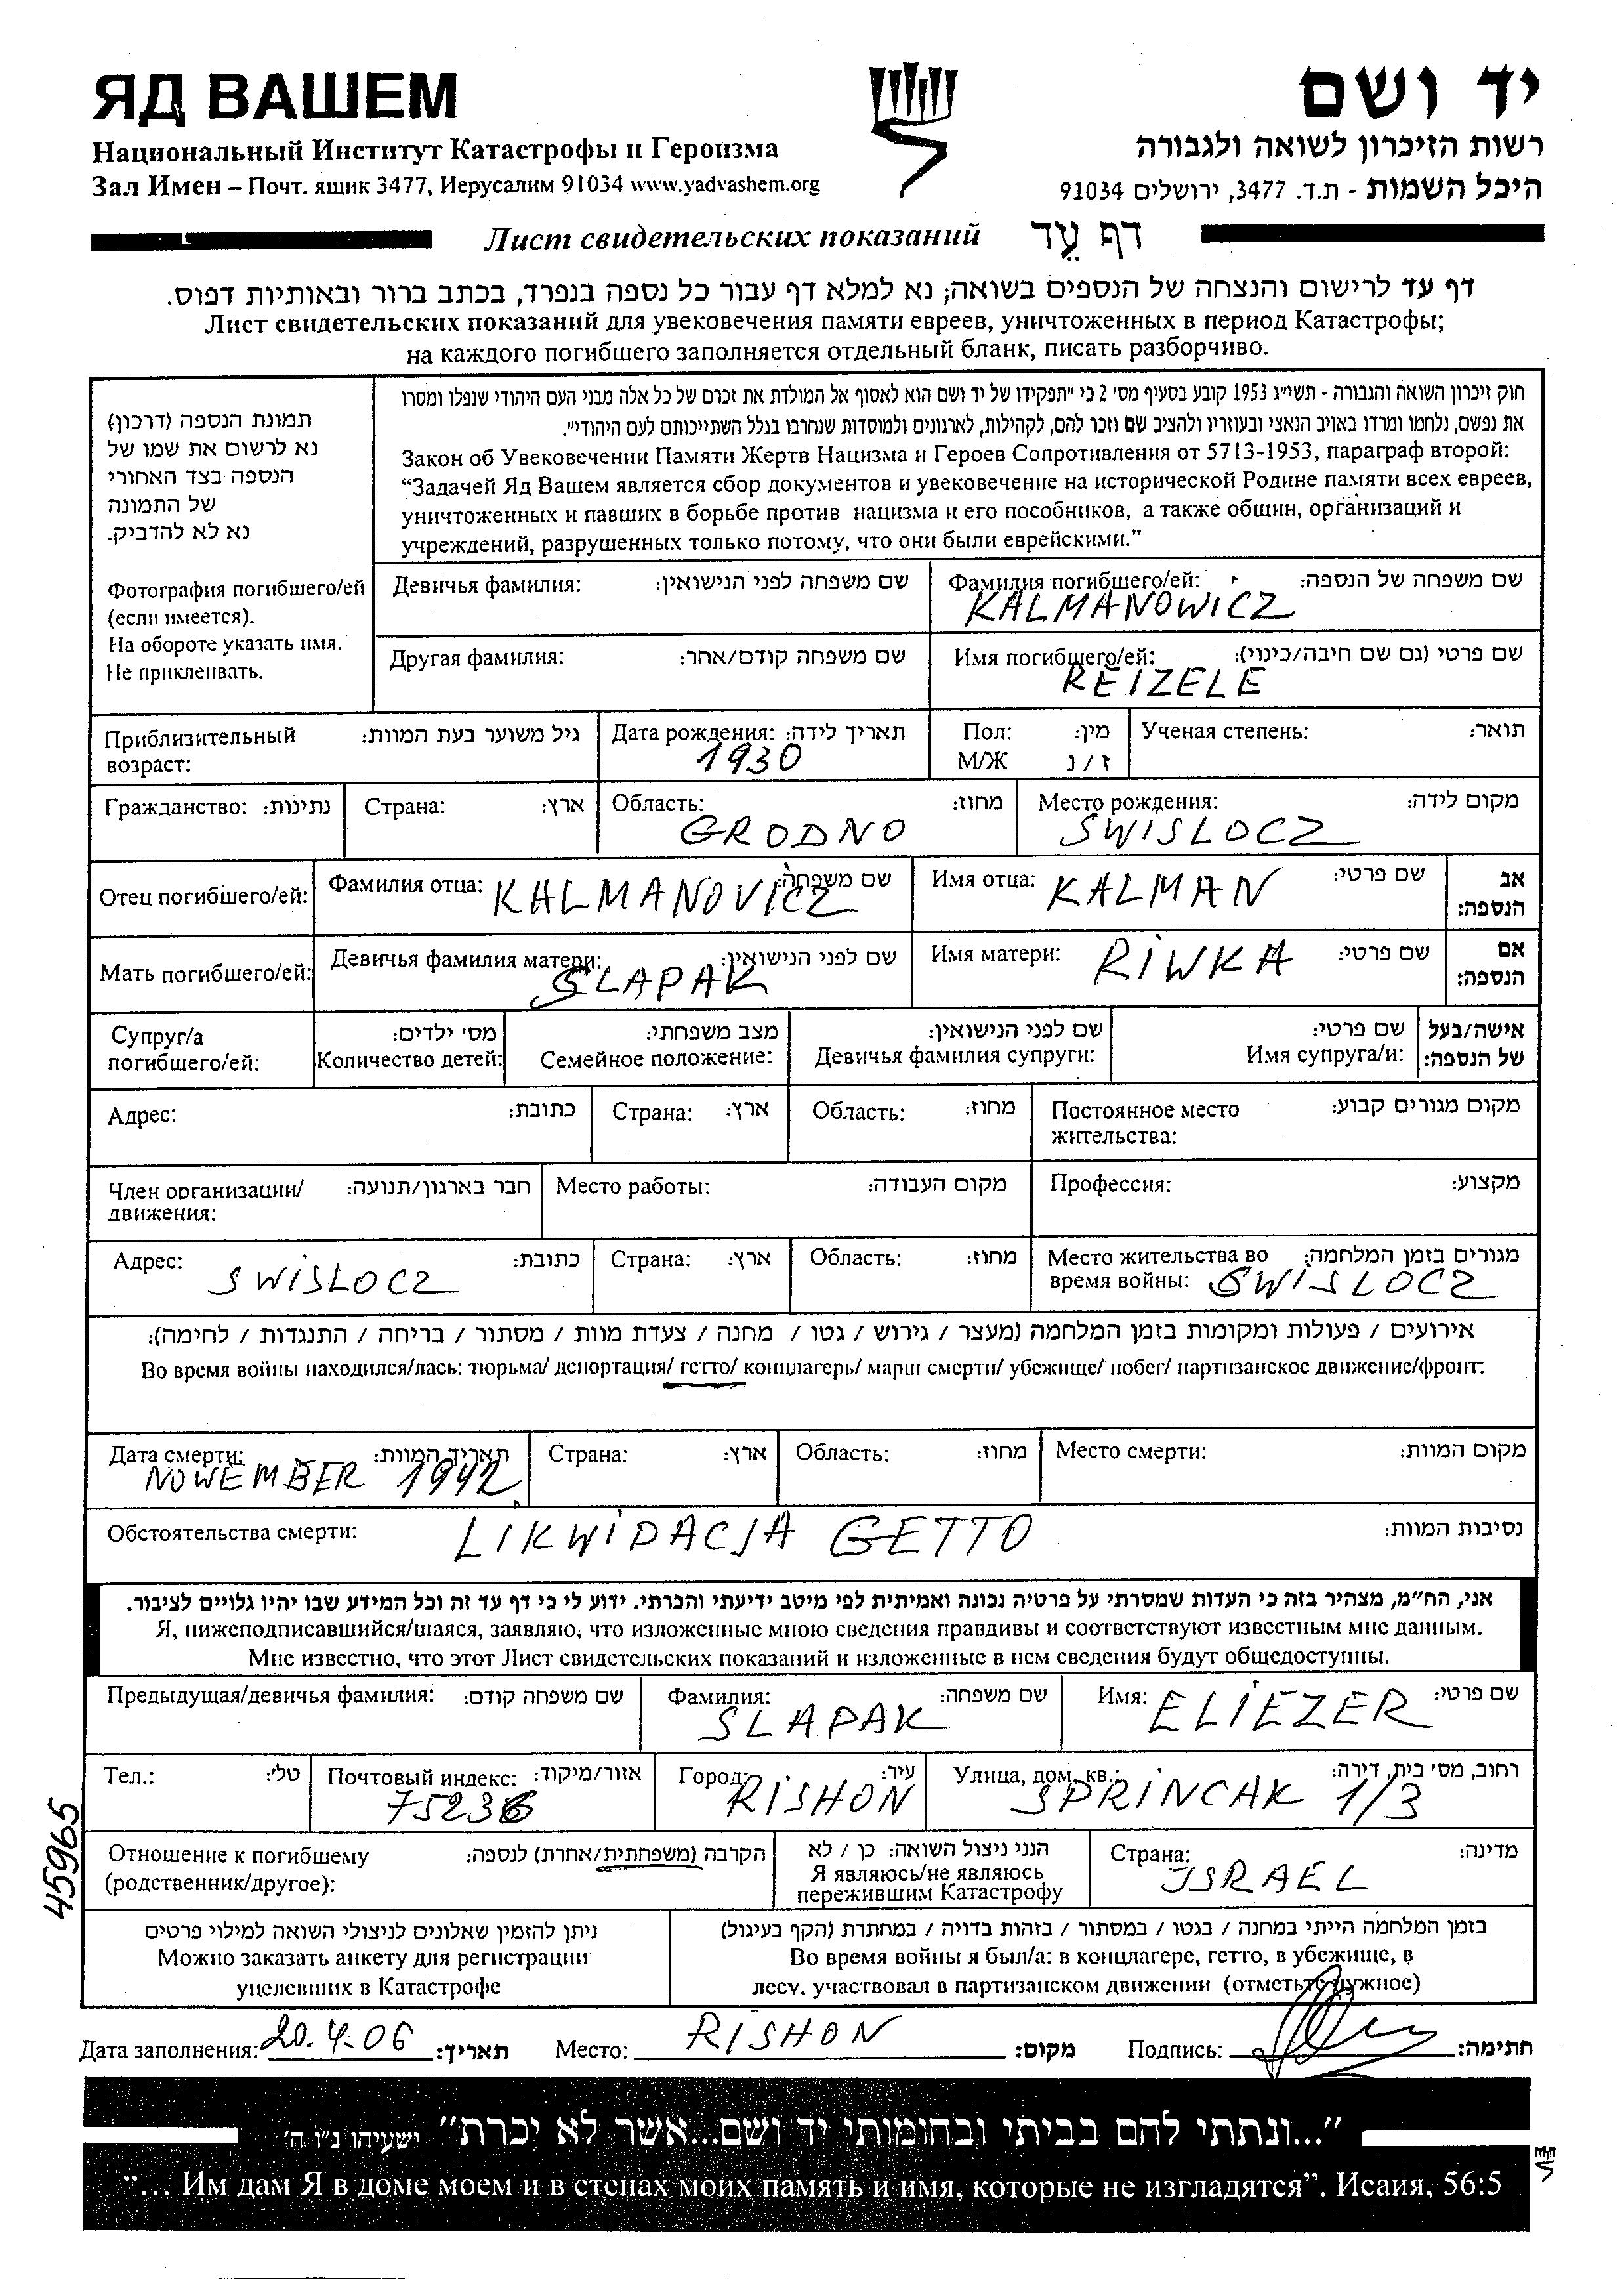 ЯД ВАШЕМ
Национальный Институт Катастрофы и Героизма
Зал Имен – Почт. ящик 3477, Иерусалим 91034 www.yadvashem.org
יד ושם
רשות הזיכרון לשואה ולגבורה
היכל השמות - ת.ד. 3477, ירושלים 91034
Лист свидетельских показаний דף עֵד
דף עד לרישום והנצחה של הנספים בשואה; נא למלא דף עבור כל נספה בנפרד, בכתב ברור ובאותיות דפוס.
Лист свидетельских показаний для увековечения памяти евреев, уничтоженных в период Катастрофы;
на каждого погибшего заполняется отдельный бланк, писать разборчиво.
תמונת הנספה (דרכון)
נא לרשום את שמו של
הנספה בצד האחורי
של התמונה
נא לא להדביק.
Фотография погибшего/ей
(если имеется).
На обороте указать имя.
Не приклеивать.
חוק זיכרון השואה והגבורה - תשי״ג 1953 קובע בסעיף מס׳ 2 כי ״תפקידו של יד ושם הוא לאסוף אל המולדת את זכרם של כל אלה מבני העם היהודי שנפלו ומסרו
את נפשם, נלחמו ומרדו באויב הנאצי ובעוזריו ולהציב שם וזכר להם, לקהילות, לארגונים ולמוסדות שנחרבו בגלל השתייכותם לעם היהודי״.
Закон об Увековечении Памяти Жертв Нацизма и Героев Сопротивления от 5713-1953, параграф второй:
“Задачей Яд Вашем является сбор документов и увековечение на исторической Родине памяти всех евреев,
уничтоженных и павших в борьбе против нацизма и его пособников, а также общин, организаций и
учреждений, разрушенных только потому, что они были еврейскими.”
Девичья фамилия: שם משפחה לפני הנישואין:
Фамилия погибшего/ей: שם משפחה של הנספה:
KALMANOWICZ
Другая фамилия: שם משפחה קודם/אחר:
Имя погибшего/ей: שם פרטי (גם שם חיבה/כינוי):
REIZELE
Приблизительный возраст: גיל משוער בעת המוות:
Дата рождения: תאריך לידה:
1930
Пол: מין:
М/Ж ז / נ
Ученая степень: תואר:
Гражданство: נתינות:
Страна: ארץ:
Область: מחוז:
GRODNO
Место рождения: מקום לידה:
SWISLOCZ
Отец погибшего/ей:
Фамилия отца: שם משפחה:
KALMANOVICZ
Имя отца: שם פרטי:
KALMAN
אב
הנספה:
Мать погибшего/ей:
Девичья фамилия матери: שם לפני הנישואין:
SLAPAK
Имя матери: שם פרטי:
RIWKA
אם
הנספה:
Супруг/а
погибшего/ей:
מס׳ ילדים:
Количество детей:
מצב משפחתי:
Семейное положение:
שם לפני הנישואין:
Девичья фамилия супруги:
שם פרטי:
Имя супруга/и:
אישה/בעל
של הנספה:
Адрес: כתובת:
Страна: ארץ:
Область: מחוז:
Постоянное место жительства: מקום מגורים קבוע:
Член организации/ движения: חבר בארגון/תנועה:
Место работы: מקום העבודה:
Профессия: מקצוע:
Адрес: כתובת:
SWISLOCZ
Страна: ארץ:
Область: מחוז:
Место жительства во מגורים בזמן המלחמה:
время войны: SWISLOCZ
אירועים / פעולות ומקומות בזמן המלחמה (מעצר / גירוש / גטו / מחנה / צעדת מוות / מסתור / בריחה / התנגדות / לחימה):
Во время войны находился/лась: тюрьма/ депортация/ гетто/ концлагерь/ марш смерти/ убежище/ побег/ партизанское движение/фронт:
Дата смерти: תאריך המוות:
NOWEMBER 1942
Страна: ארץ:
Область: מחוז:
Место смерти: מקום המוות:
Обстоятельства смерти: LIKWIDACJA GETTO נסיבות המוות:
אני, הח״מ, מצהיר בזה כי העדות שמסרתי על פרטיה נכונה ואמיתית לפי מיטב ידיעתי והכרתי. ידוע לי כי דף עד זה וכל המידע שבו יהיו גלויים לציבור.
Я, нижеподписавшийся/шаяся, заявляю, что изложенные мною сведения правдивы и соответствуют известным мне данным.
Мне известно, что этот Лист свидетельских показаний и изложенные в нем сведения будут общедоступны.
Предыдущая/девичья фамилия: שם משפחה קודם:
Фамилия: שם משפחה:
SLAPAK
Имя: שם פרטי:
ELIEZER
Тел.: טל׳:
Почтовый индекс: אזור/מיקוד:
75236
Город: עיר:
RISHON
Улица, дом, кв.: רחוב, מס׳ בית, דירה:
SPRINCAK 1/3
Отношение к погибшему הקרבה (משפחתית/אחרת) לנספה:
(родственник/другое):
הנני ניצול השואה: כן / לא
Я являюсь/не являюсь
пережившим Катастрофу
Страна: מדינה:
ISRAEL
ניתן להזמין שאלונים לניצולי השואה למילוי פרטים
Можно заказать анкету для регистрации
уцелевших в Катастрофе
בזמן המלחמה הייתי במחנה / בגטו / במסתור / בזהות בדויה / במחתרת (הקף בעיגול)
Во время войны я был/а: в концлагере, гетто, в убежище, в
лесу, участвовал в партизанском движении (отметьте нужное)
Дата заполнения: 20.4.06 תאריך: Место: RISHON מקום: Подпись: חתימה:
45965
״...ונתתי להם בביתי ובחומותי יד ושם...אשר לא יכרת״ ישעיהו נ״ו ה׳
“... Им дам Я в доме моем и в стенах моих память и имя, которые не изгладятся”. Исаия, 56:5